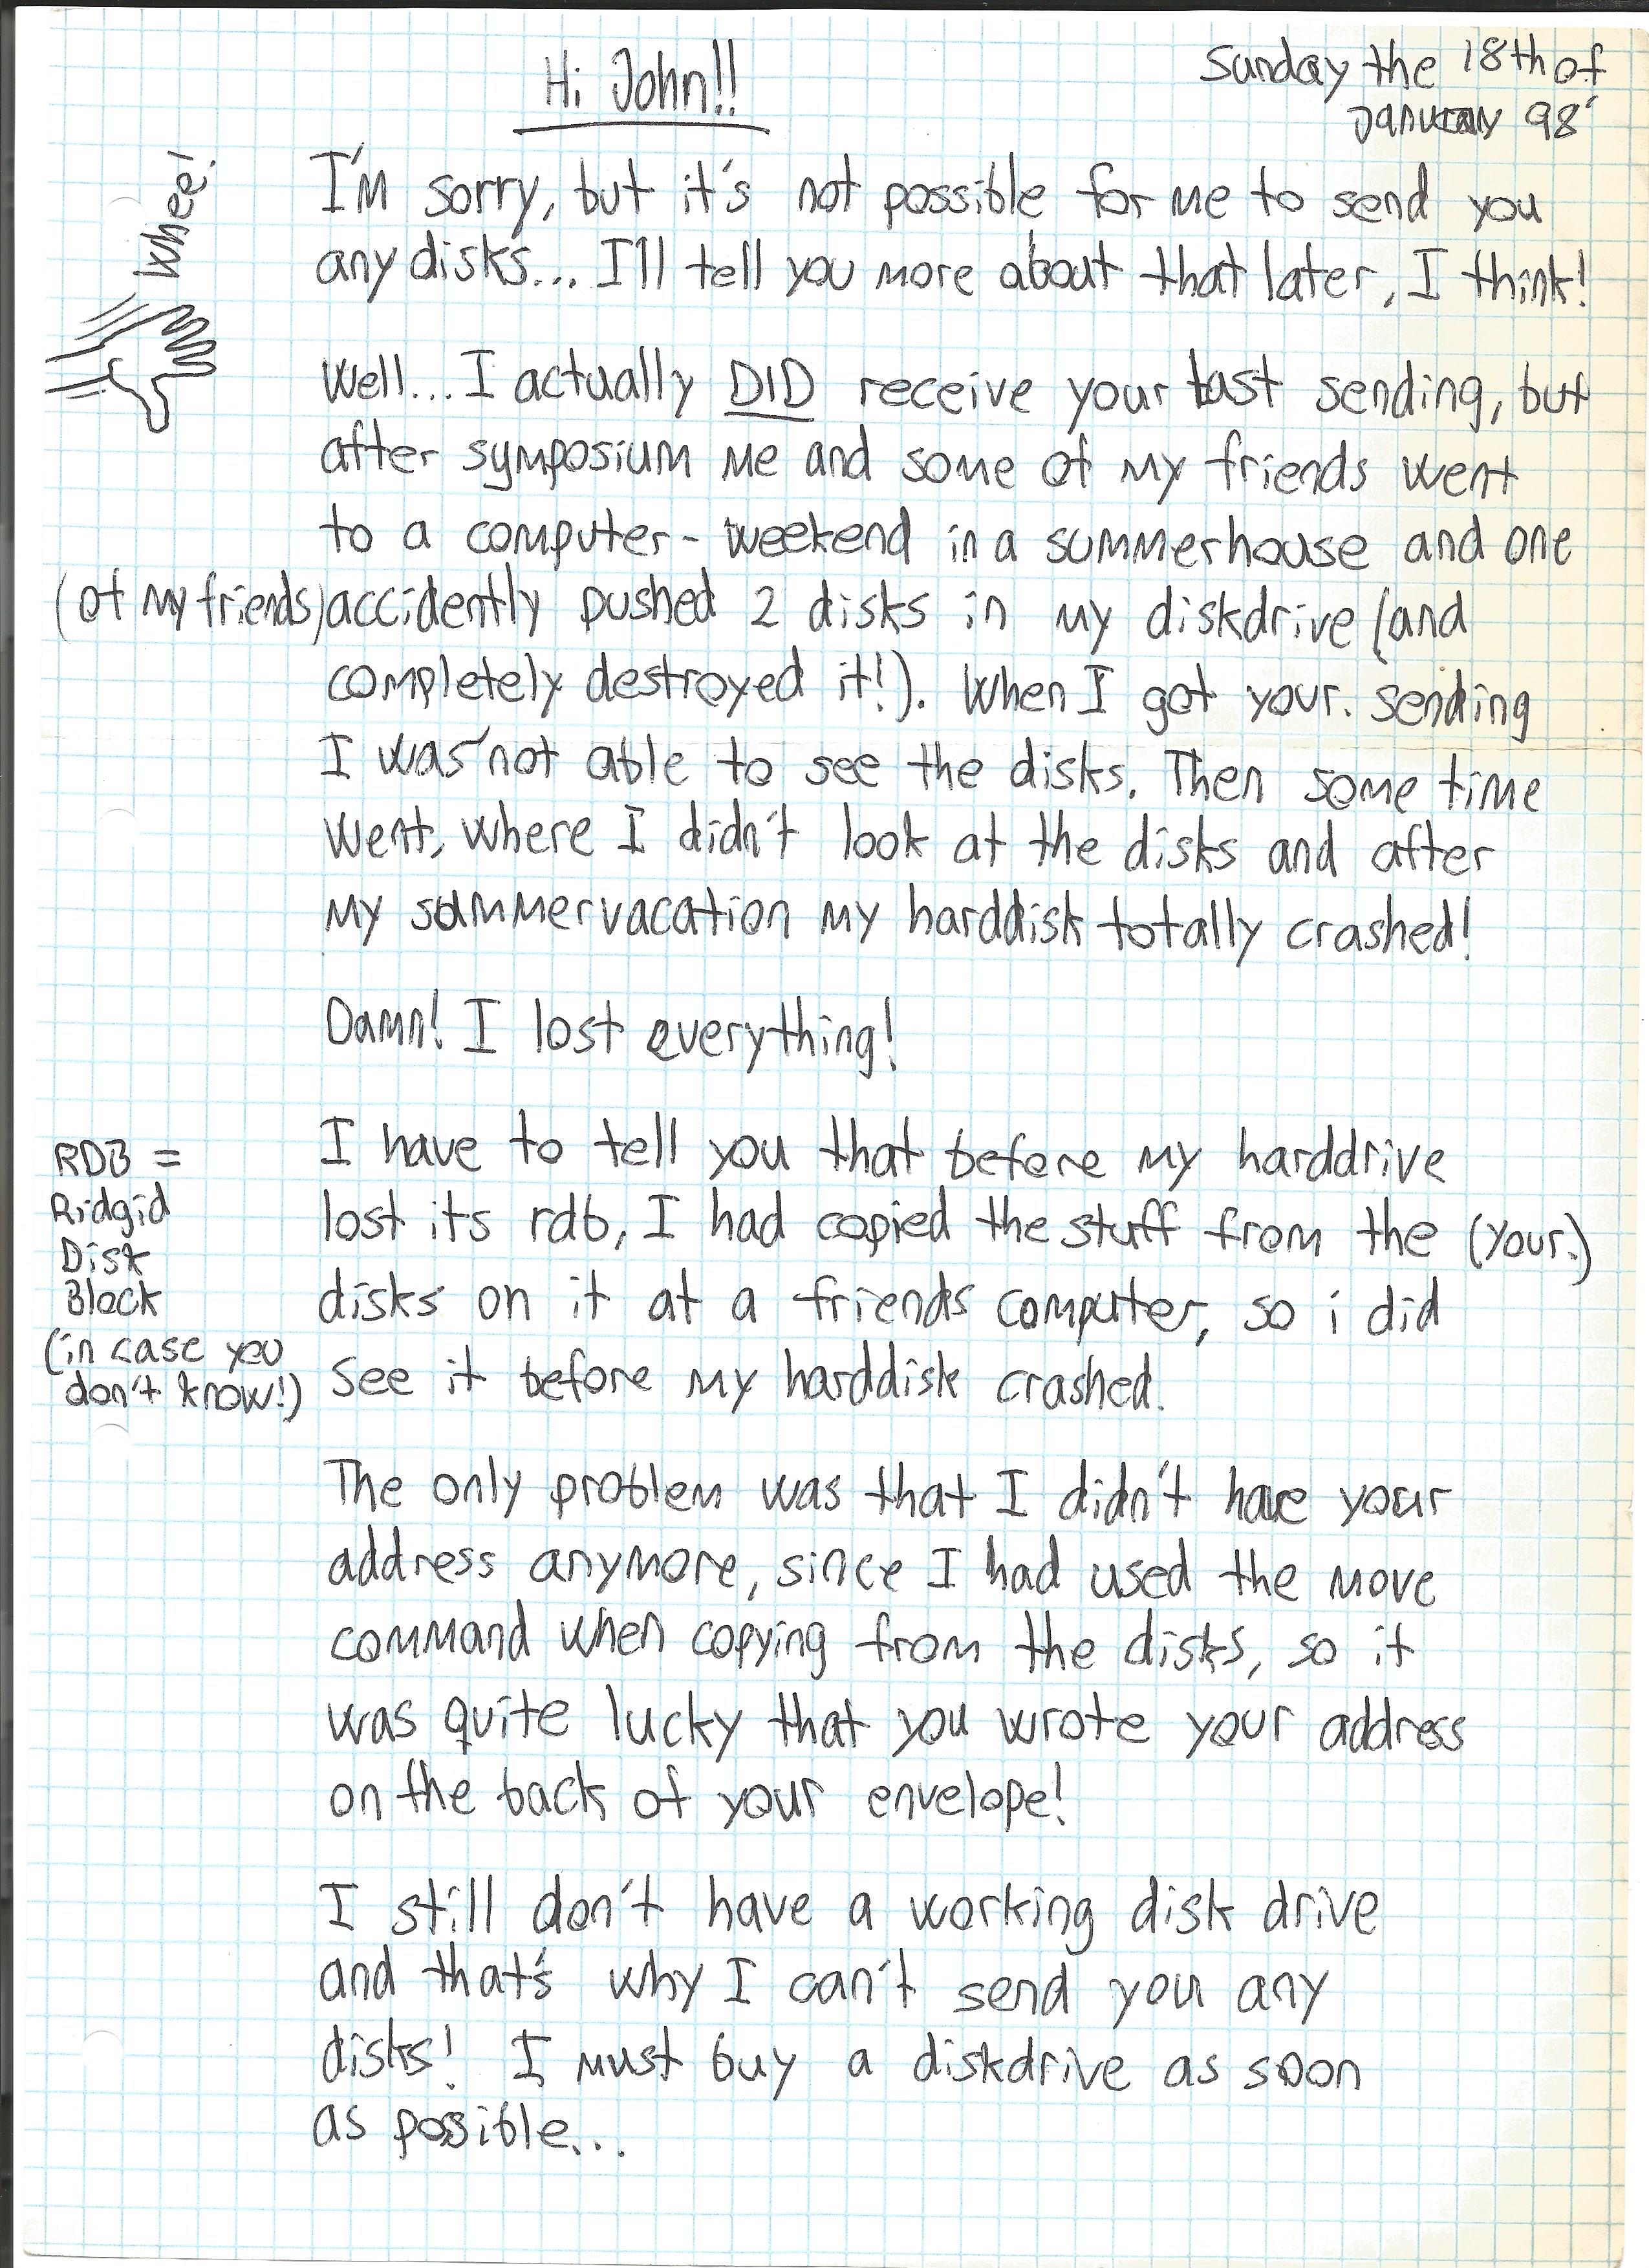 Hi John!!
Sunday the 18th of
January 98'
Whee!
I'm sorry, but it's not possible for me to send you
any disks... I'll tell you more about that later, I think!
Well... I actually DID receive your last sending, but
after symposium me and some of my friends went
to a computer-weekend in a summerhouse and one
(of my friends) accidently pushed 2 disks in my diskdrive (and
completely destroyed it!). When I got your. sending
I was not able to see the disks. Then some time
went, where I didn't look at the disks and after
my summervacation my harddisk totally crashed!
Damn! I lost everything!
I have to tell you that before my harddrive
lost its rdb, I had copied the stuff from the (your.)
disks on it at a friends computer, so i did
see it before my harddisk crashed.
RDB =
Ridgid
Disk
Block
(in case you
don't know!)
The only problem was that I didn't have your
address anymore, since I had used the move
command when copying from the disks, so it
was quite lucky that you wrote your address
on the back of your envelope!
I still don't have a working disk drive
and that's why I can't send you any
disks! I must buy a diskdrive as soon
as possible...